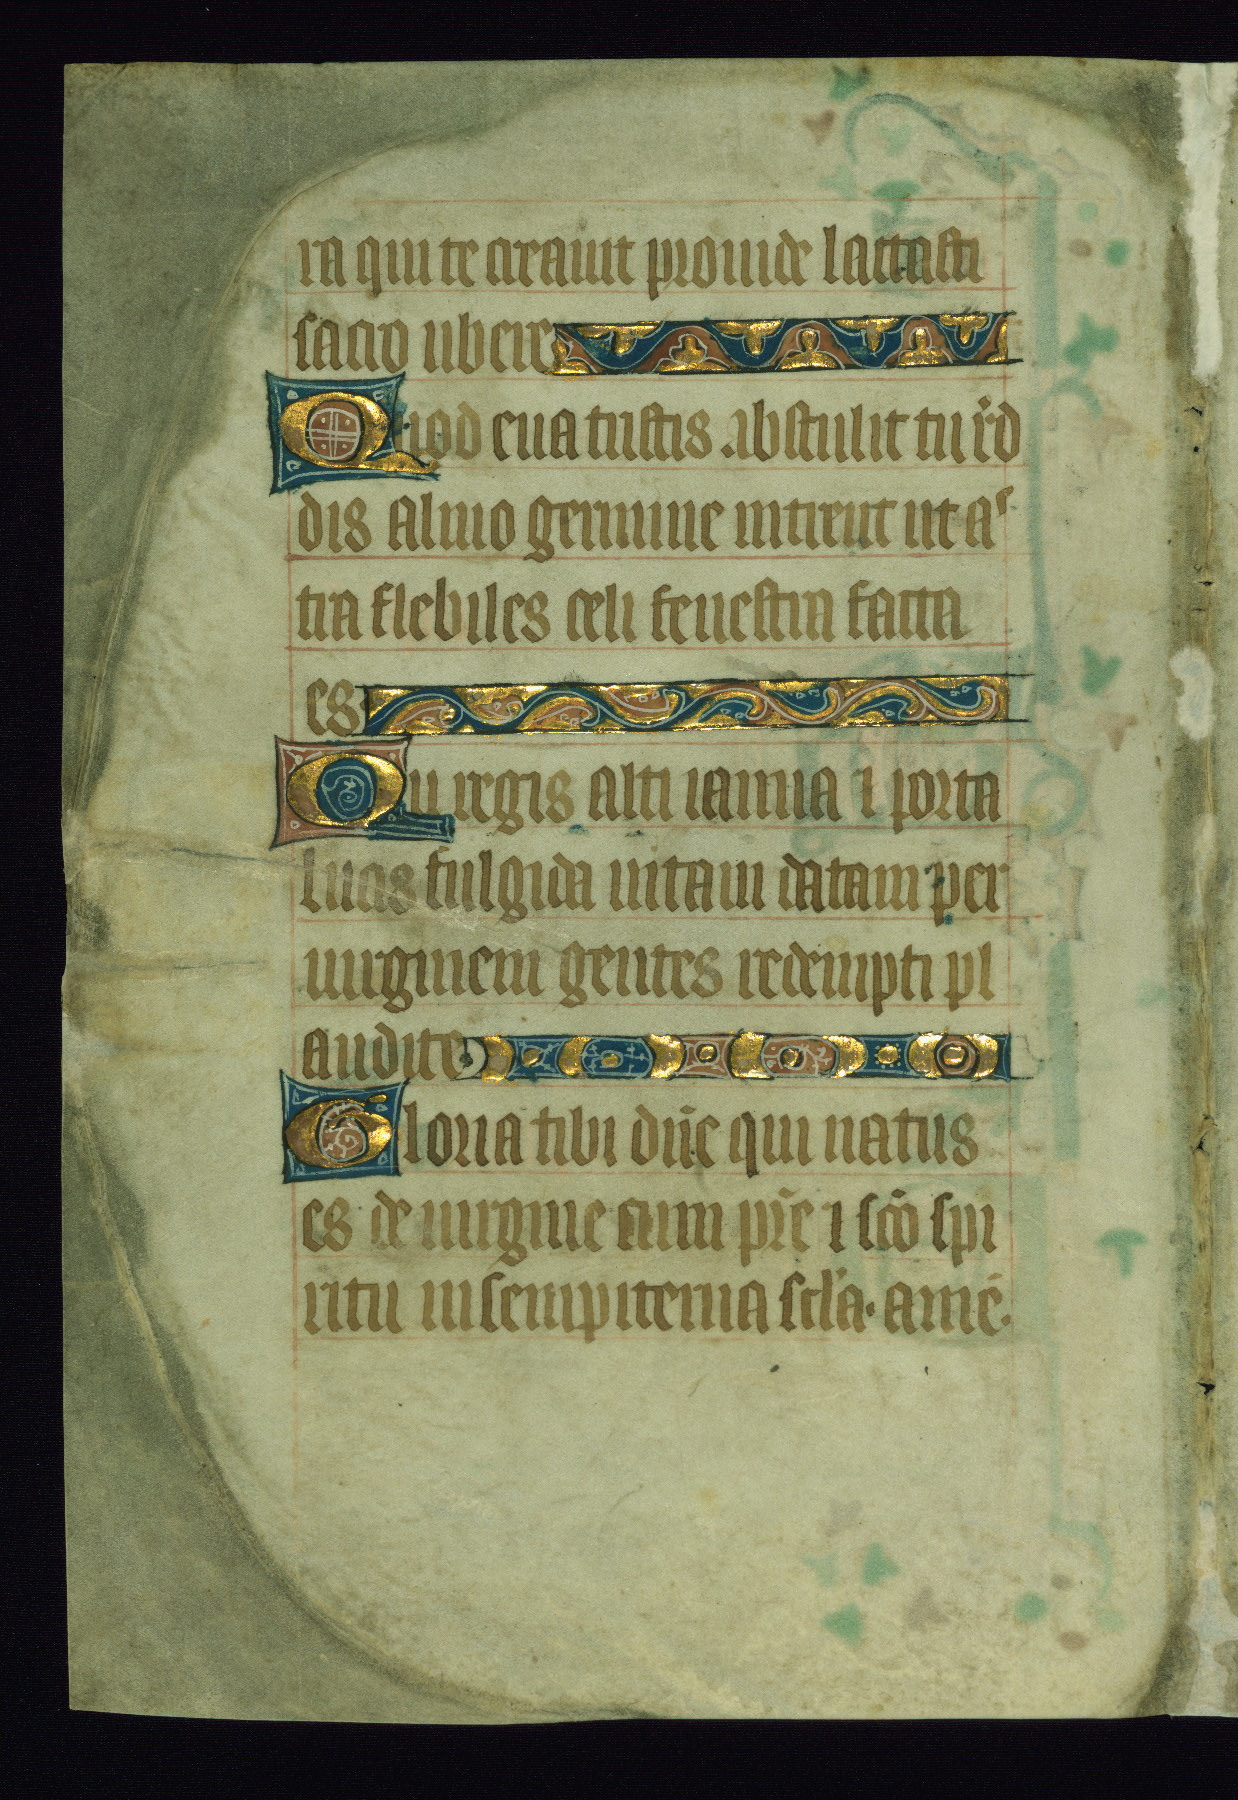 ra qui te creauit prouide lactasti
sacro ubere
Quod eua tristis abstulit tu r̄d
dis almo germine intrent ut aˢ
tra flebiles celi fenestra facta
es
Qu regis alti ianua ⁊ porta
lucis fulgida uitam datam per
uirginem gentes redempti pl
audite
Gloria tibi dn̄e qui natus
es de uirgine cum pr̄e ⁊ sc̄o spi
ritu in sempiterna scl̄a. amē.